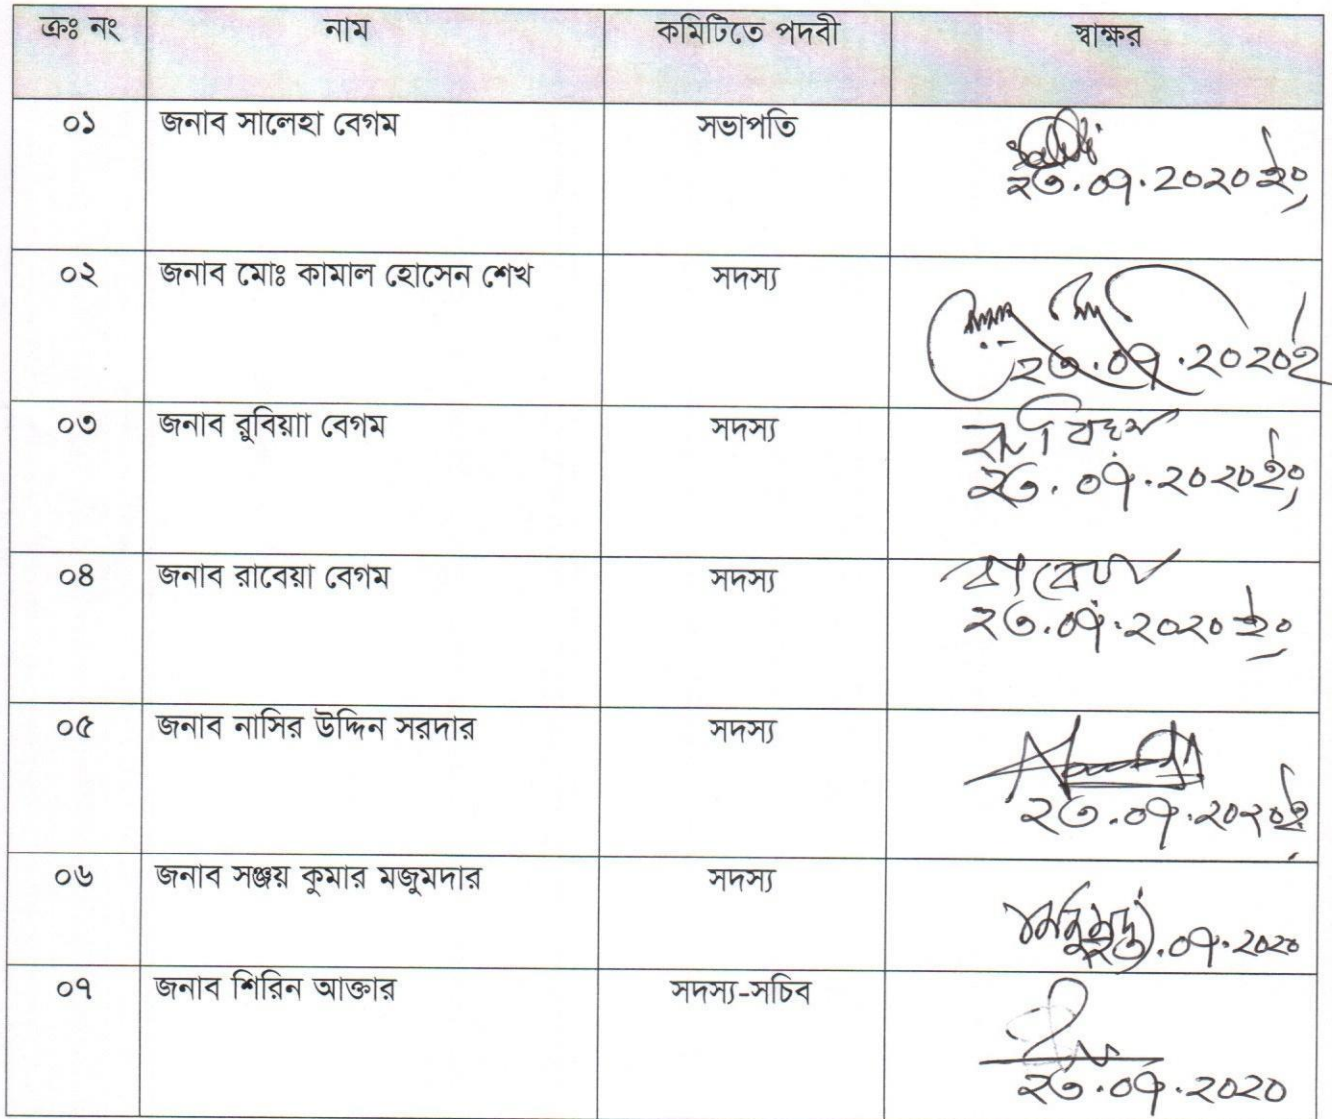 ক্রঃ নং নাম কমিটিতে পদবী স্বাক্ষর
০১ জনাব সালেহা বেগম সভাপতি
২৩.০৭.২০২০
০২ জনাব মোঃ কামাল হোসেন শেখ সদস্য
২৩.০৭.২০২০
০৩ জনাব রুবিয়াা বেগম সদস্য
২৩.০৭.২০২০
০৪ জনাব রাবেয়া বেগম সদস্য রাবেয়া
২৩.০৭.২০২০
০৫ জনাব নাসির উদ্দিন সরদার সদস্য
২৩.০৭.২০২০
০৬ জনাব সঞ্জয় কুমার মজুমদার সদস্য
২৩.০৭.২০২০
০৭ জনাব শিরিন আক্তার সদস্য-সচিব
২৩.০৭.২০২০